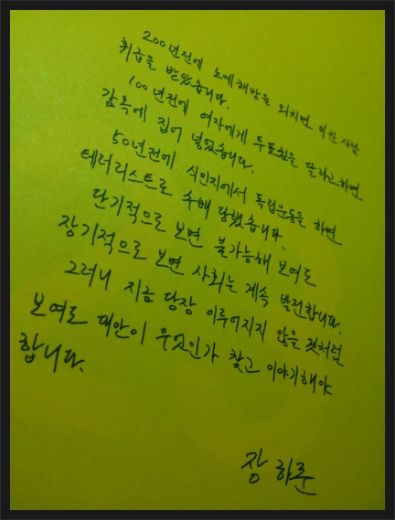 200년전에 노예해방을 외치면 미친 사람
취급을 받았습니다.
100년전에 여자에게 투표권을 달라고하면
감옥에 집어 넣었습니다.
50년전에 식민지에서 독립운동을 하면
테러리스트로 수배 당했습니다.
단기적으로 보면 불가능해 보여도
장기적으로 보면 사회는 계속 발전합니다.
그러니 지금 당장 이루어지지 않을 것처럼
보여도 대안이 무엇인가 찾고 이야기해야
합니다.
장하준